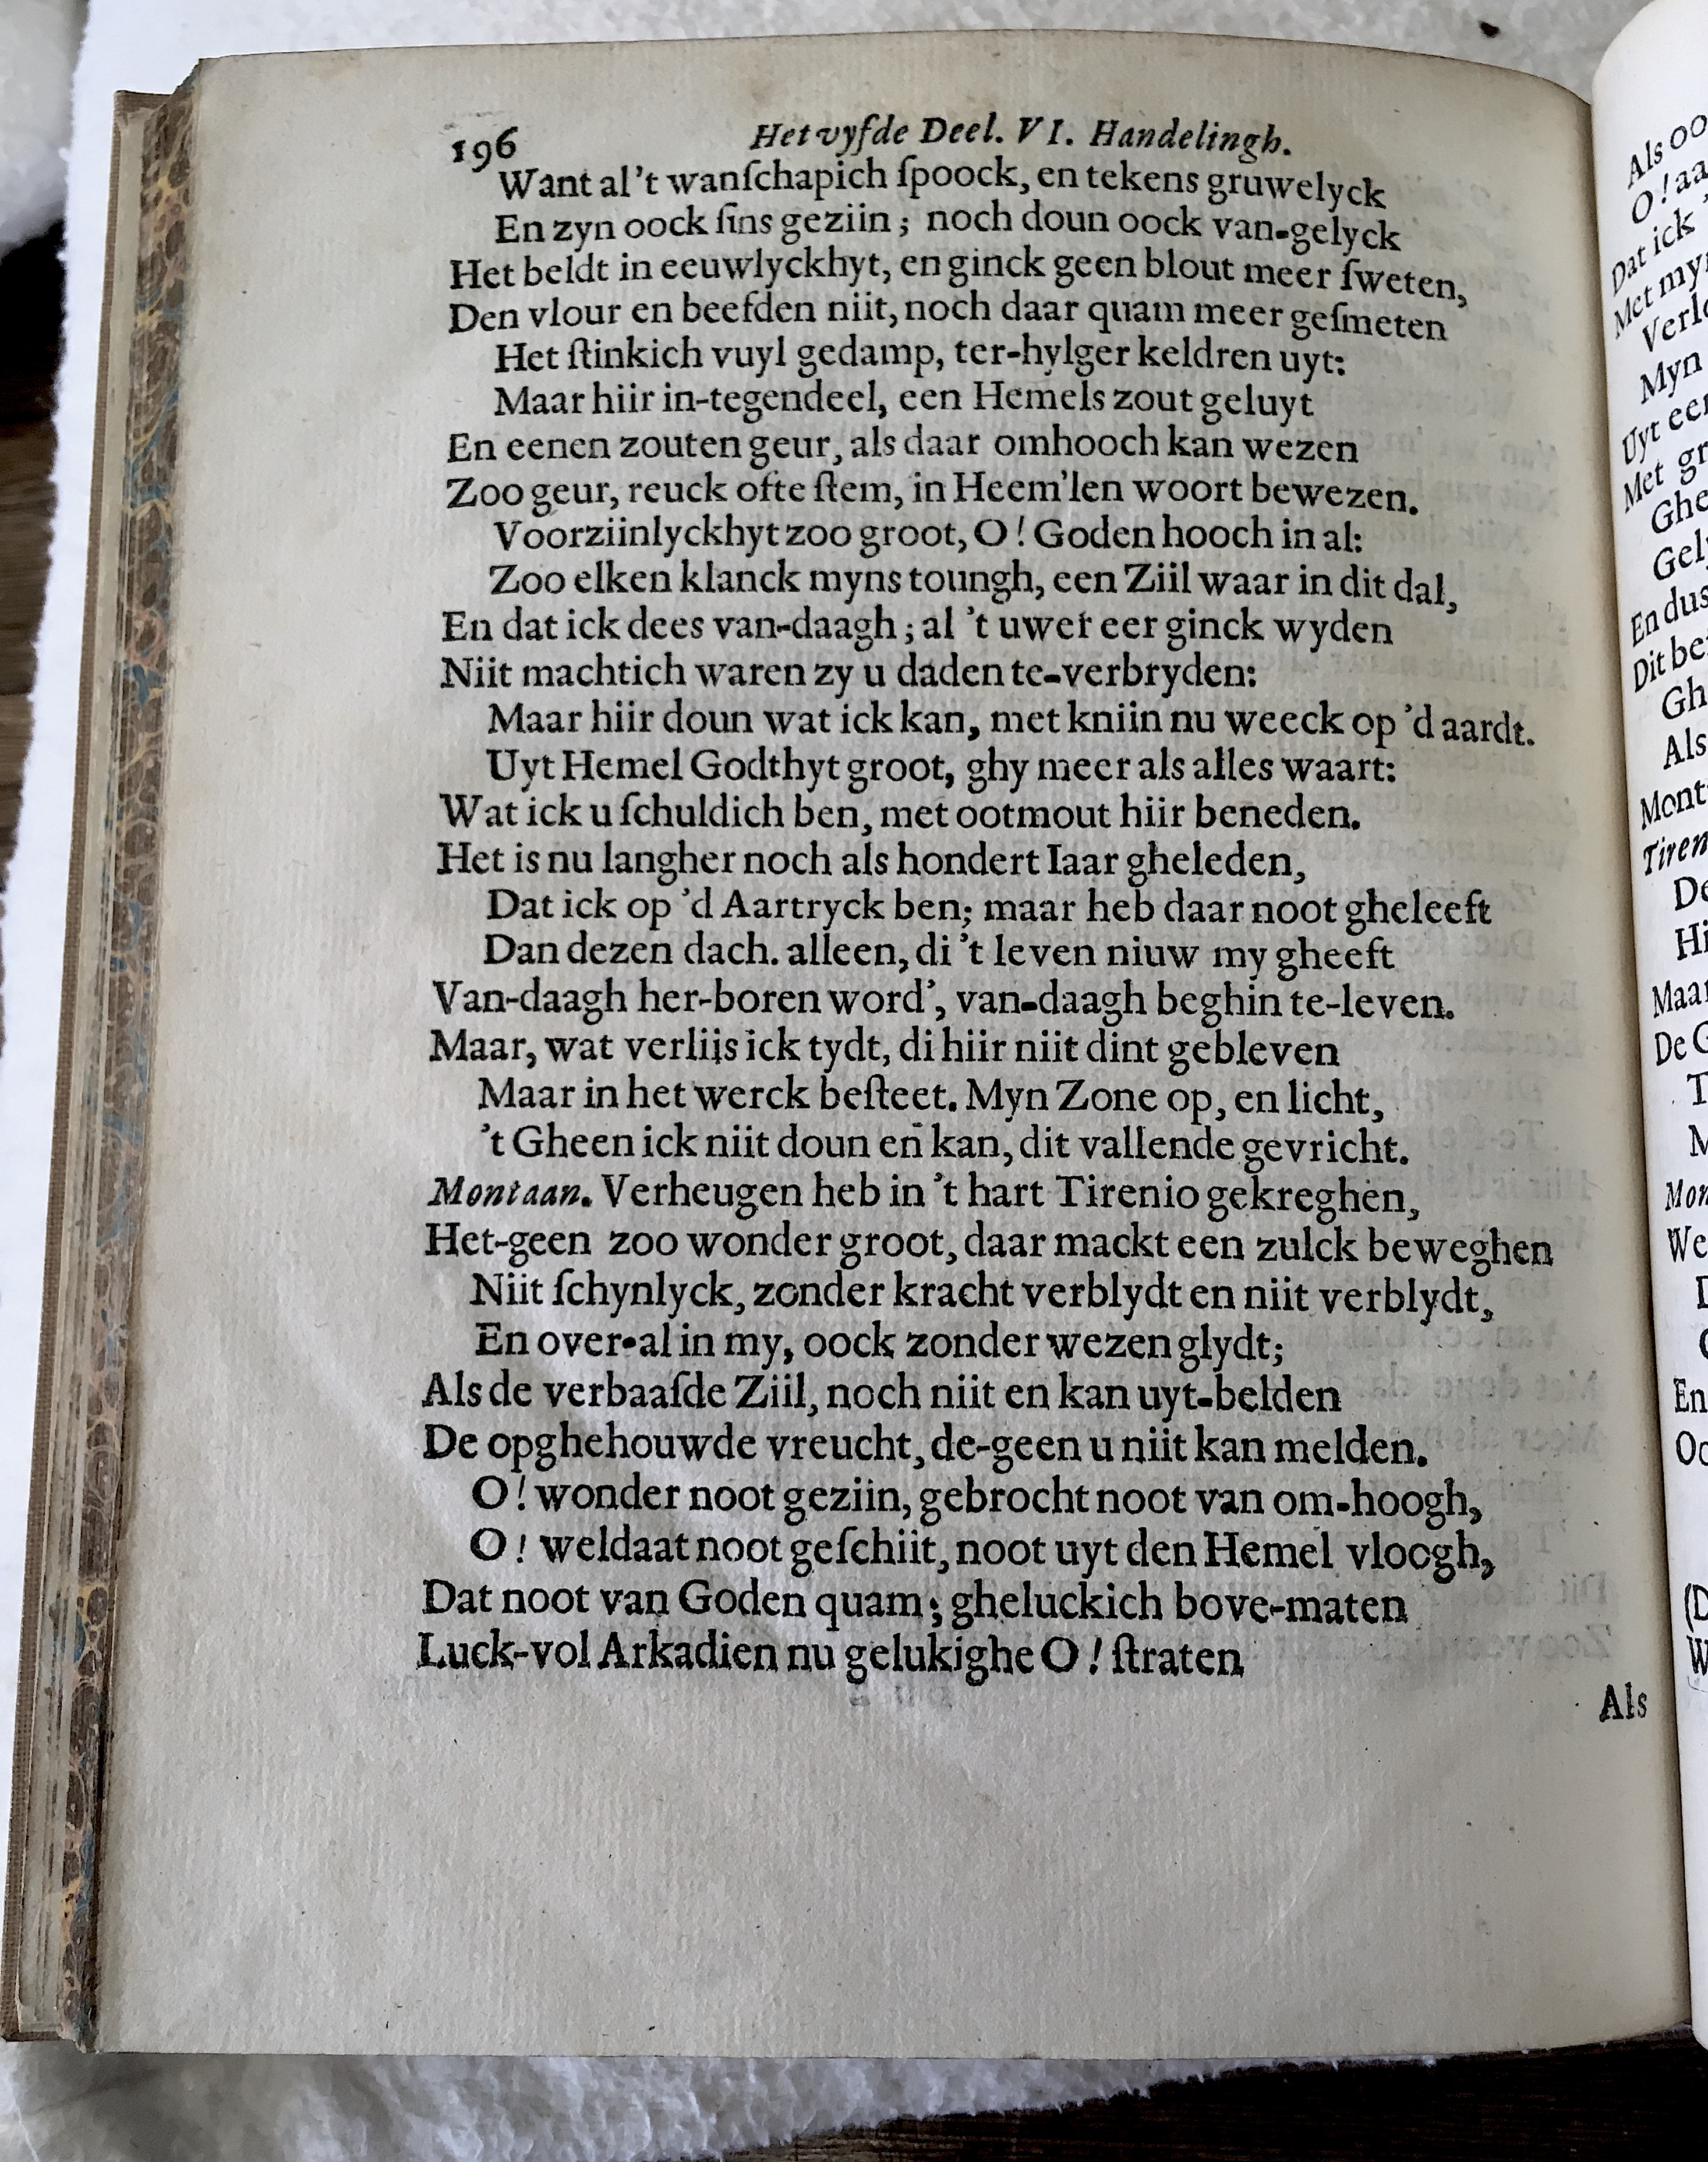 196 Het vyfde Deel. VI. Handelingh.
Want al 't wanſchapich ſpoock, en tekens gruwelyck
En zyn oock ſins geziin; noch doun oock van-gelyck
Het beldt in eeuwlyckhyt, en ginck geen blout meer ſweten,
Den vlour en beefden niit, noch daar quam meer geſmeten
Het ſtinkich vuyl gedamp, ter-hylger keldren uyt:
Maar hiir in-tegendeel, een Hemels zout geluyt
En eenen zouten geur, als daar omhooch kan wezen
Zoo geur, reuck ofte ſtem, in Heem'len woort bewezen.
Voorziinlyckhyt zoo groot, O! Goden hooch in al:
Zoo elken klanck myns toungh, een Ziil waar in dit dal,
En dat ick dees van-daagh; al 't uwer eer ginck wyden
Niit machtich waren zy u daden te-verbryden:
Maar hiir doun wat ick kan, met kniin nu weeck op 'd aardt.
Uyt Hemel Godthyt groot, ghy meer als alles waart:
Wat ick u ſchuldich ben, met ootmout hiir beneden.
Het is nu langher noch als hondert Iaar gheleden,
Dat ick op 'd Aartryck ben; maar heb daar noot gheleeft
Dan dezen dach. alleen, di 't leven niuw my gheeft
Van-daagh her-boren word', van-daagh beghin te-leven.
Maar, wat verliis ick tydt, di hiir niit dint gebleven
Maar in het werck beſteet. Myn Zone op, en licht,
't Gheen ick niit doun en kan, dit vallende gevricht.
Montaan. Verheugen heb in 't hart Tirenio gekreghen,
Het-geen zoo wonder groot, daar mackt een zulck beweghen
Niit ſchynlyck, zonder kracht verblydt en niit verblydt,
En over-al in my, oock zonder wezen glydt;
Als de verbaaſde Ziil, noch niit en kan uyt-belden
De opghehouwde vreucht, de-geen u niit kan melden.
O! wonder noot geziin, gebrocht noot van om-hoogh,
O! weldaat noot geſchiit, noot uyt den Hemel vloogh,
Dat noot van Goden quam; gheluckich bove-maten
Luck-vol Arkadien nu gelukighe O! ſtraten
Als
Als oo
O! aa
Dat ick
Met my
Verl
Myn
Uyt ee
Met gr
Ghe
Gel
En dus
Dit be
Gh
Als
Mont
Tiren
De
Hi
Maar
De G
T
M
Mon
We
En
Oo
(D
W